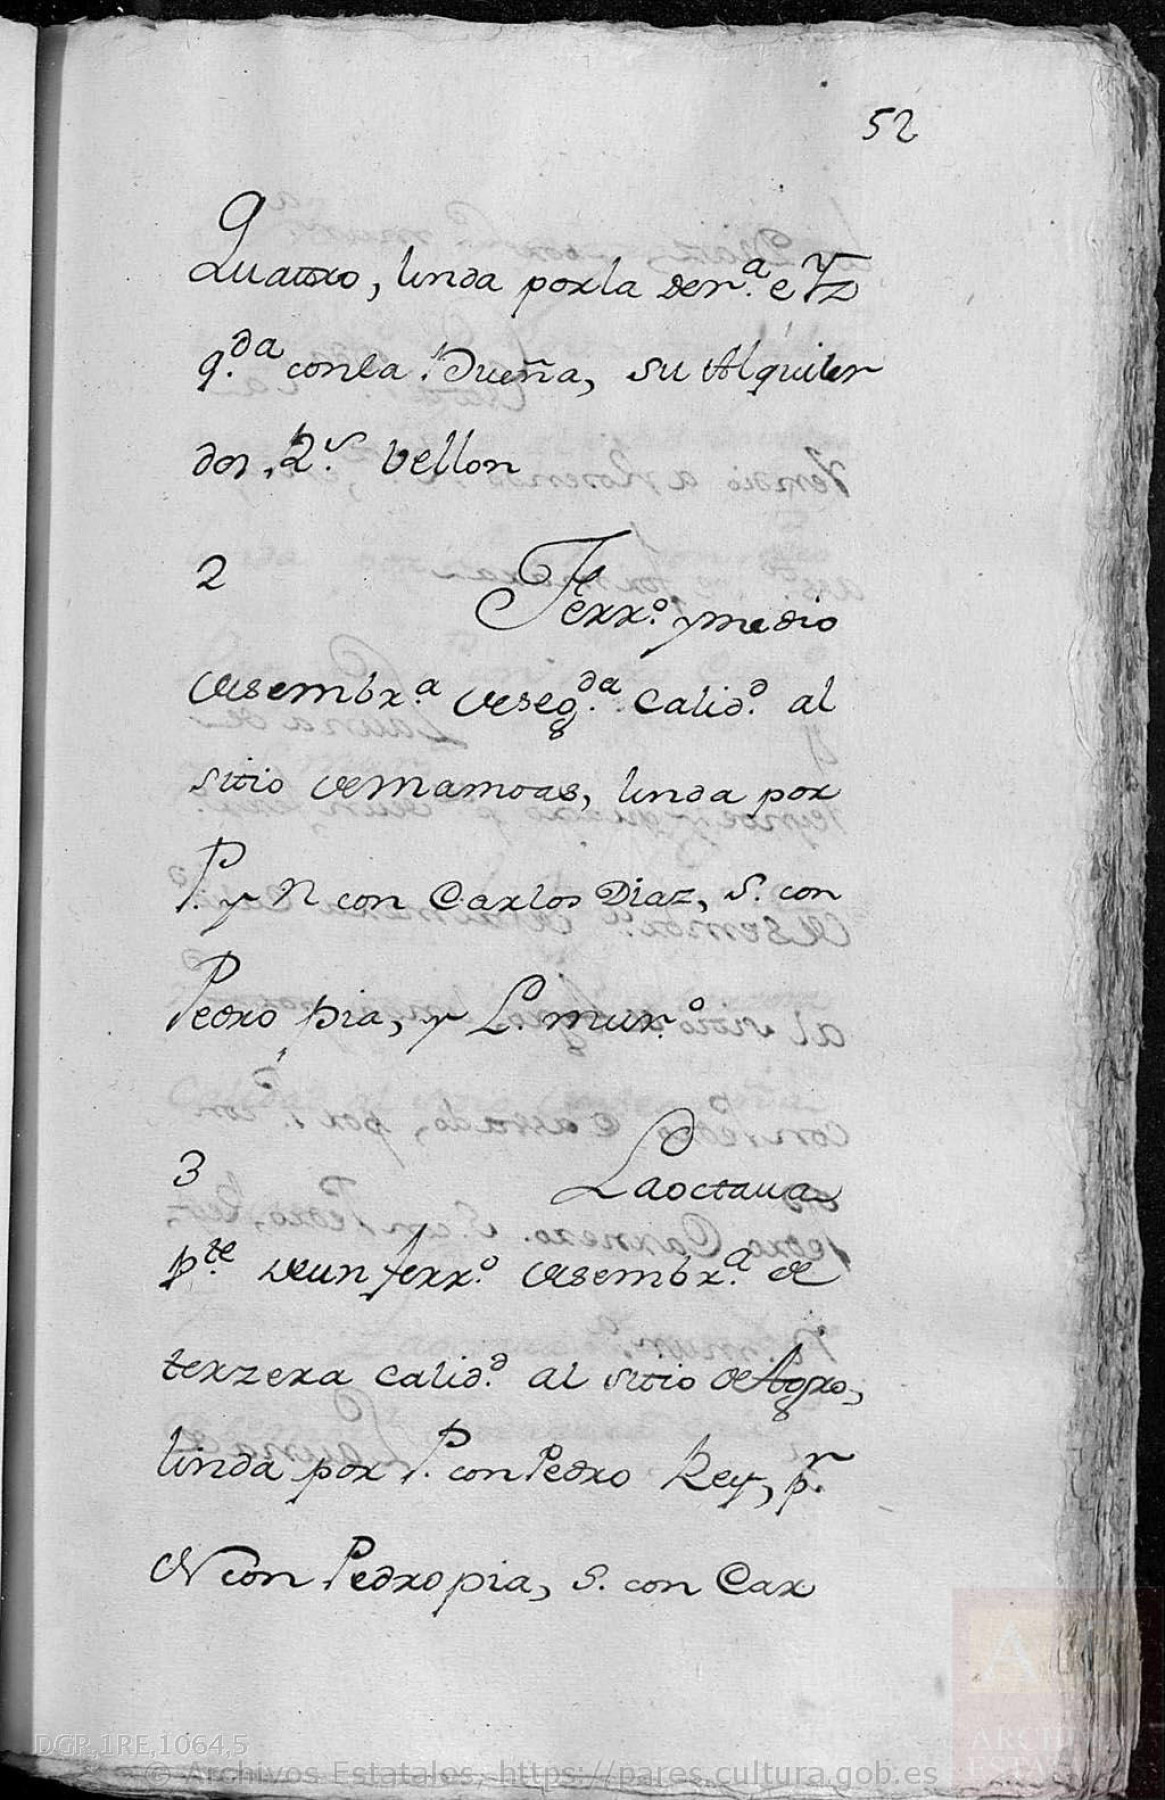 52
Quatro, linda por la der.ª e Yz
q.da con la Dueña, su Alquiler
dos, R.s vellon
2 Ferr.º y medio
de sembr.ª de seg.da Calid.d al
sitio de mamoas, linda por
P. y N con Carlos Diaz, S. con
Pedro pia, y L. mur.º
3 La octaua
p.te de un ferr.º de sembr.ª de
terzera calid.d al sitio de Agro,
linda por P. con Pedro Rey, p.r
N con Pedro pia, S. con Car
DGR,1RE,1064,5
© Archivos Estatales, https://pares.cultura.gob.es